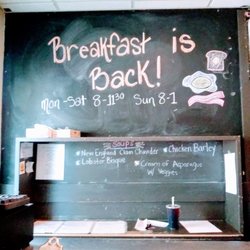 Breakfast is
Back!
Mon-Sat 8-11:30 Sun 8-1
Soups
New England Clam Chowder
Chicken Barley
Lobster Bisque
Cream of Asparagus
W/ Veggies